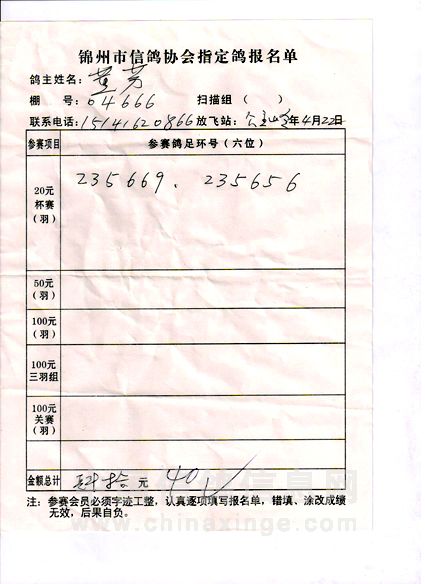 锦州市信鸽协会指定鸽报名单
鸽主姓名：黄芳
棚 号：04666 扫描组（ ）
联系电话：15141620866 放飞站：公主岭 年4月22日
参赛项目 参赛鸽足环号（六位）
20元
杯赛
（羽）
235669、235656
50元
（羽）
100元
（羽）
100元
三羽组
100元
关赛
（羽）
金额总计 肆拾元 40
注：参赛会员必须字迹工整，认真逐项填写报名单，错填、涂改成绩
无效，后果自负。
www.chinaxinge.com